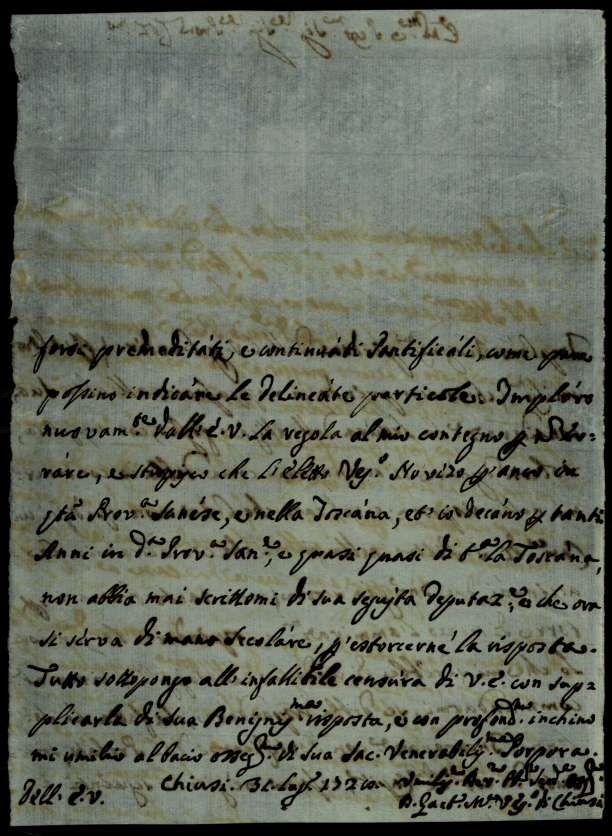 forsi premeditati, e continuati Pontificali, come pure
possino indicare le delineate particole. Implóro
nuovam.te dall'E.V. la regola al mio contegno p nõ er-
rare, e stupisco che l'eletto Ves.o Novizo p anco in
q̃ta Prov.a Sanése, e nella Toscána, et io decáno p tanti
Anni in d.a Prov.a San.e, e quasi quasi di t.a la Toscana,
non abbia mai scrittomi di sua seguita Deputaz.e, e che ora
si serva di mano Secoláre, p estorcerné la risposta.
Tutto sottopongo all'infallibile censura di V.E. con sup-
plicarla di sua Benignis.ma risposta, e con profond.mo inchino
mi umilio al bacio osseq.mo di sua Sac. Venerabilis.ma Porpora.
Chiusi. 31. Lug.
Dell'E.V.
Umilis.mo
B. Gaet. M.a Ves.o di Chiusi